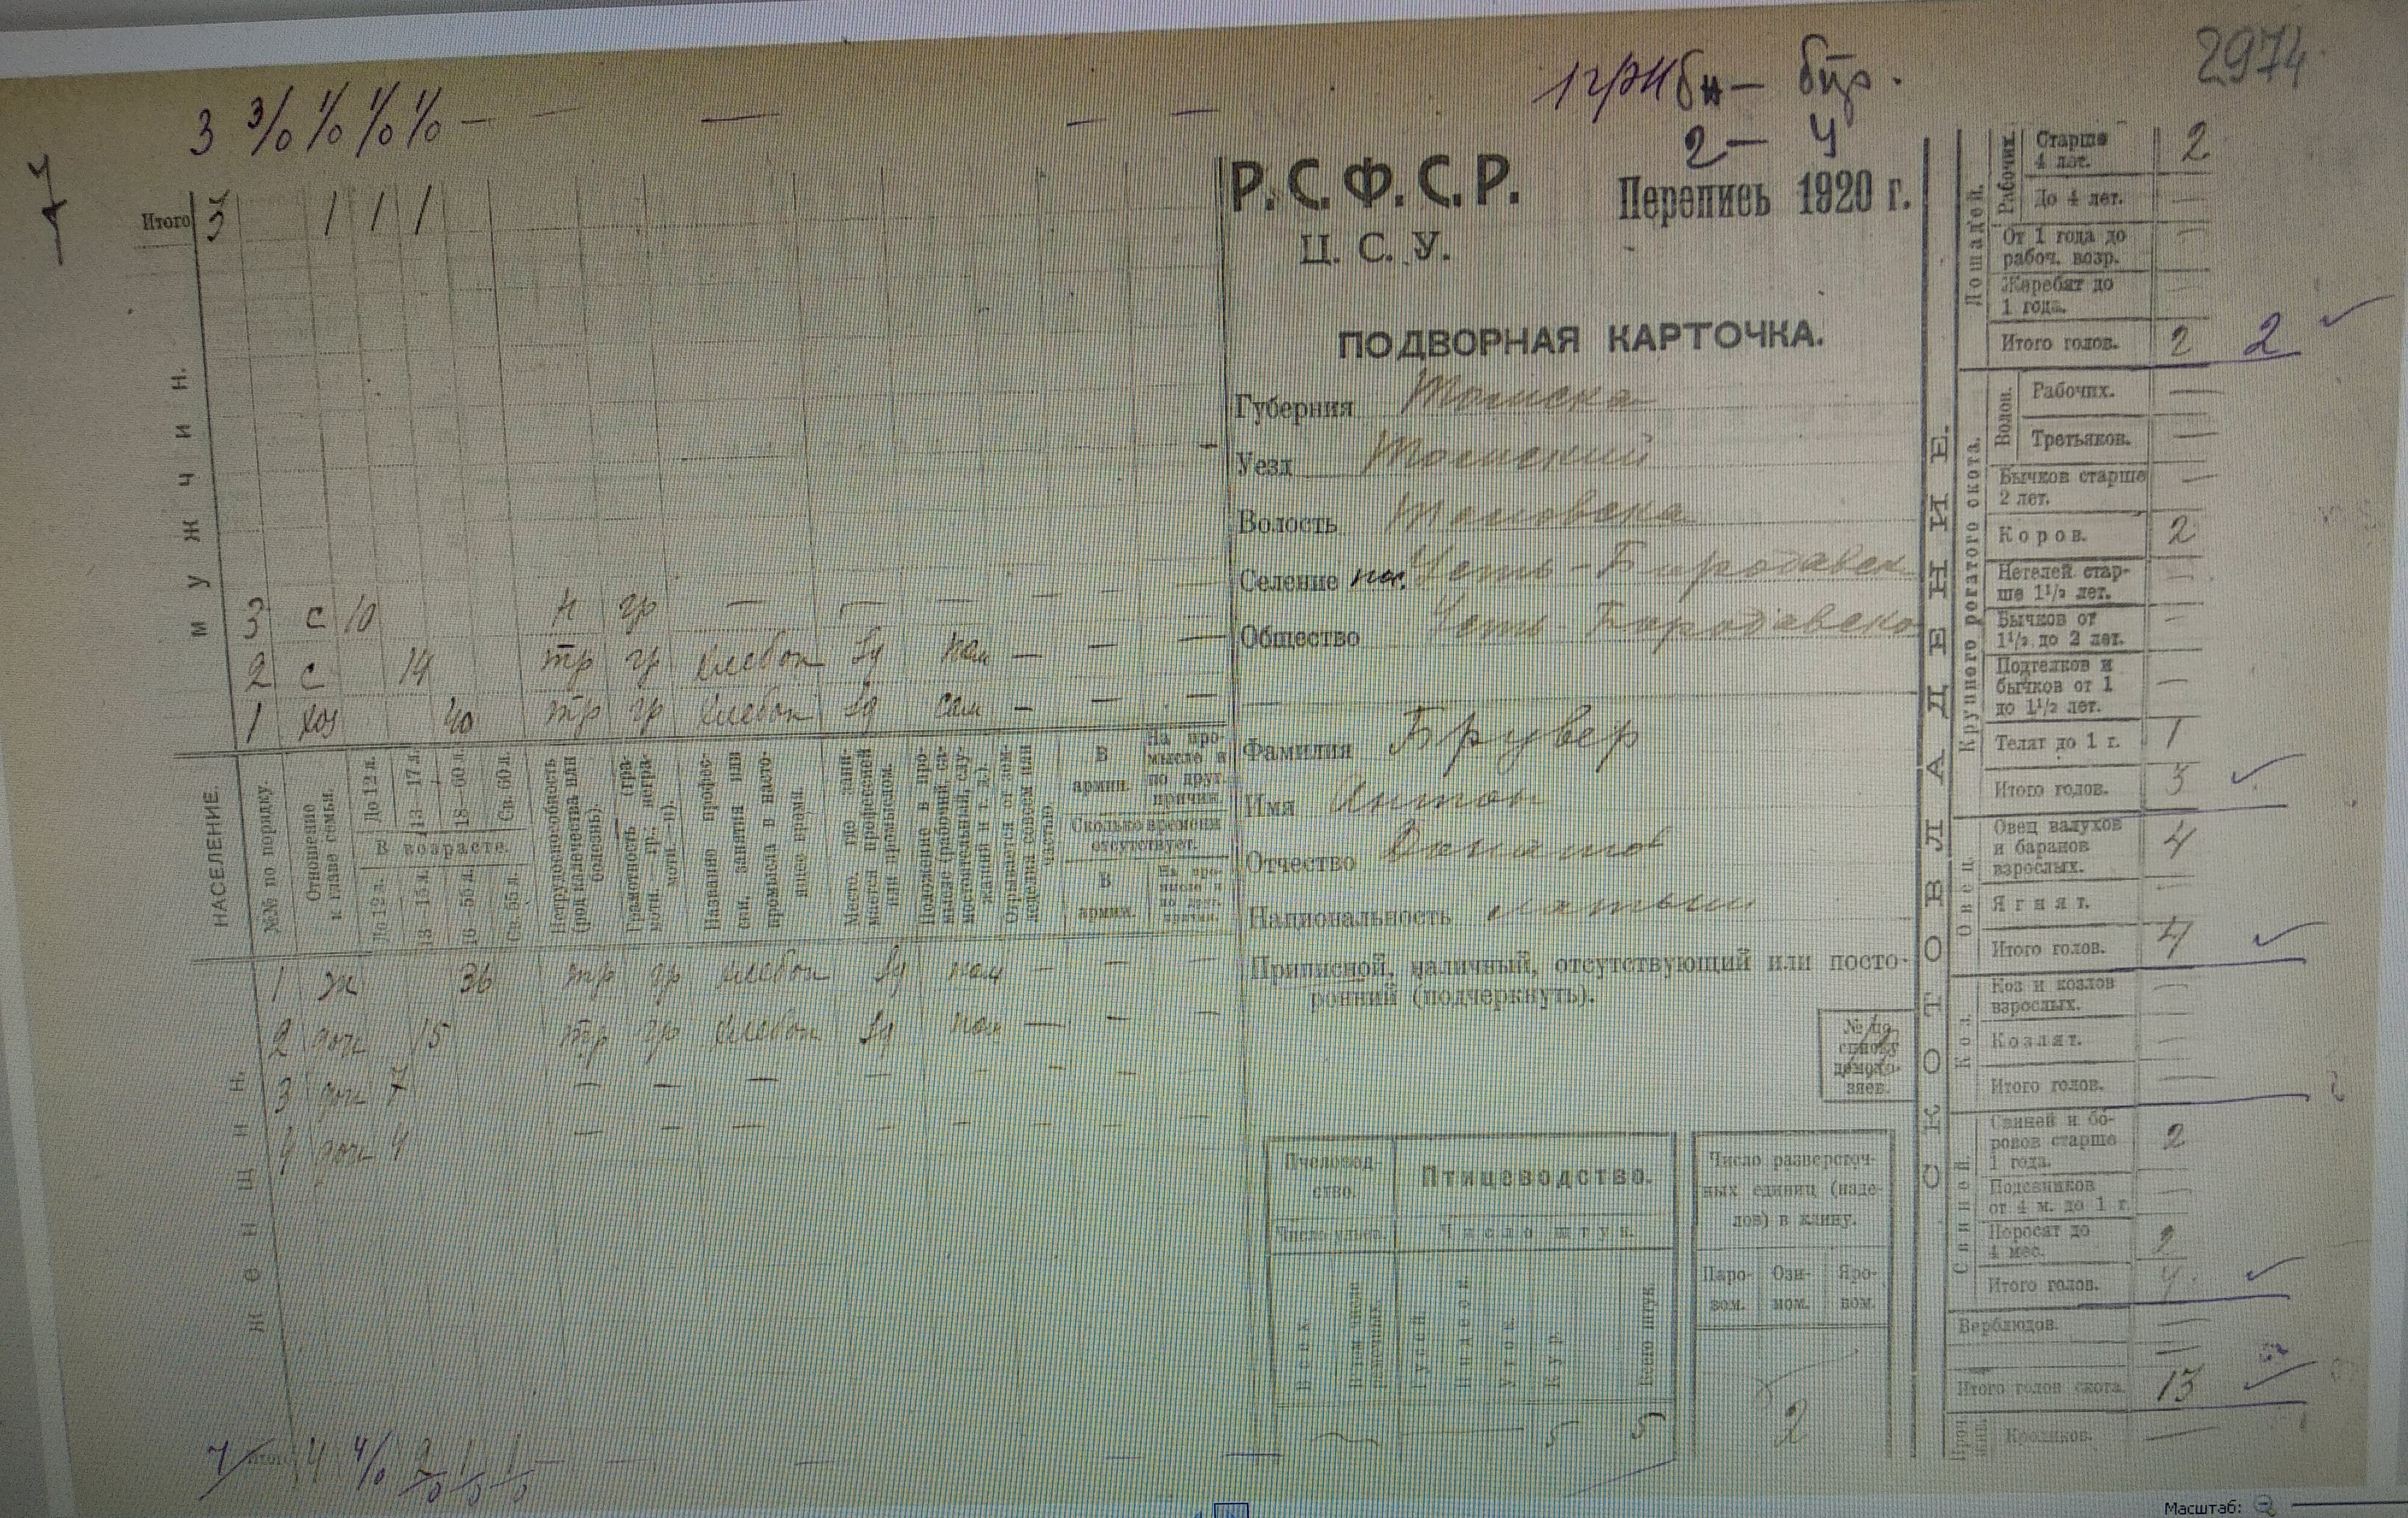 2974
3 3/0 1/0 1/0 1/0 — — — — —
2 — 4
7
Итого 3 1 1 1
МУЖЧИН.
3 с 10 н гр — — — — — —
2 с 14 тр гр хлебоп пом — — —
1 хоз 40 тр гр хлебоп сам — — —
НАСЕЛЕНИЕ.
№№ по порядку.
Отношение
к главе семьи.
До 12 л.
13—17 л.
18—60 л.
Св. 60 л.
В возрасте.
До 12 л.
13—15 л.
16—55 л.
Св. 55 л.
Нетрудоспособность
(род калечества или
болезнь).
Грамотность (гра-
мотн.—гр.; негра-
мотн.—н).
Название профес-
сии, занятия или
промысла в насто-
ящее время.
Место, где зани-
мается профессией
или промыслом.
Положение в про-
мысле (рабочий, са-
мостоятельный, слу-
жащий и т. д.).
Отрывается от зем-
леделия совсем или
частью.
В
армии.
На про-
мысле и
по друг.
причин.
Сколько времени
отсутствует.
В
армии.
На про-
мысле и
по друг.
причин.
1 ж 36 тр гр хлебоп пом — — —
2 дочь 15 тр гр хлебоп пом — — —
3 дочь 7 — — — — — — — —
4 дочь 4 — — — — — — — —
ЖЕНЩИН.
7 Итого 4 4/0 2/0 1/0 1/0 — — — —
Р.С.Ф.С.Р.
Ц.С.У.
Перепись 1920 г.
ПОДВОРНАЯ КАРТОЧКА.
Губерния Томска
Уезд Томский
Волость
Селение пос. Усть-Бородавск
Общество Усть-Бородавско
Фамилия Брувер
Имя Антон
Отчество Донатов
Национальность латыш
Приписной, наличный, отсутствующий или посто-
ронний (подчеркнуть).
№ по
списку
домохо-
зяев.
Пчеловод-
ство.
Число ульев.
Всех
В том числе
рамочных.
Птицеводство.
Число штук.
Гусей
Индеек
Уток
Кур
Всего штук.
— — 5 5
Число разверсточ-
ных единиц (наде-
лов) в клину.
Паро-
вом.
Ози-
мом.
Яро-
вом.
2
СКОТОВЛАДЕНИЕ.
Лошадей.
Рабочих.
Старше
4 лет. 2
До 4 лет. —
От 1 года до
рабоч. возр. —
Жеребят до
1 года. —
Итого голов. 2 2 ✓
Крупного рогатого скота.
Волов.
Рабочих. —
Третьяков. —
Бычков старше
2 лет. —
Коров. 2
Нетелей стар-
ше 1 1/2 лет. —
Бычков от
1 1/2 до 2 лет. —
Подтелков и
бычков от 1
до 1 1/2 лет. —
Телят до 1 г. 1
Итого голов. 3 ✓
Овец.
Овец валухов
и баранов
взрослых. 4
Ягнят. —
Итого голов. 4 ✓
Коз.
Коз и козлов
взрослых. —
Козлят. —
Итого голов. —
Свиней.
Свиней и бо-
ровов старше
1 года. 2
Подсвинков
от 4 м. до 1 г. —
Поросят до
4 мес. 2
Итого голов. 4 ✓
Верблюдов. —
Итого голов скота. 13 ✓
Кроликов. —
Масштаб: